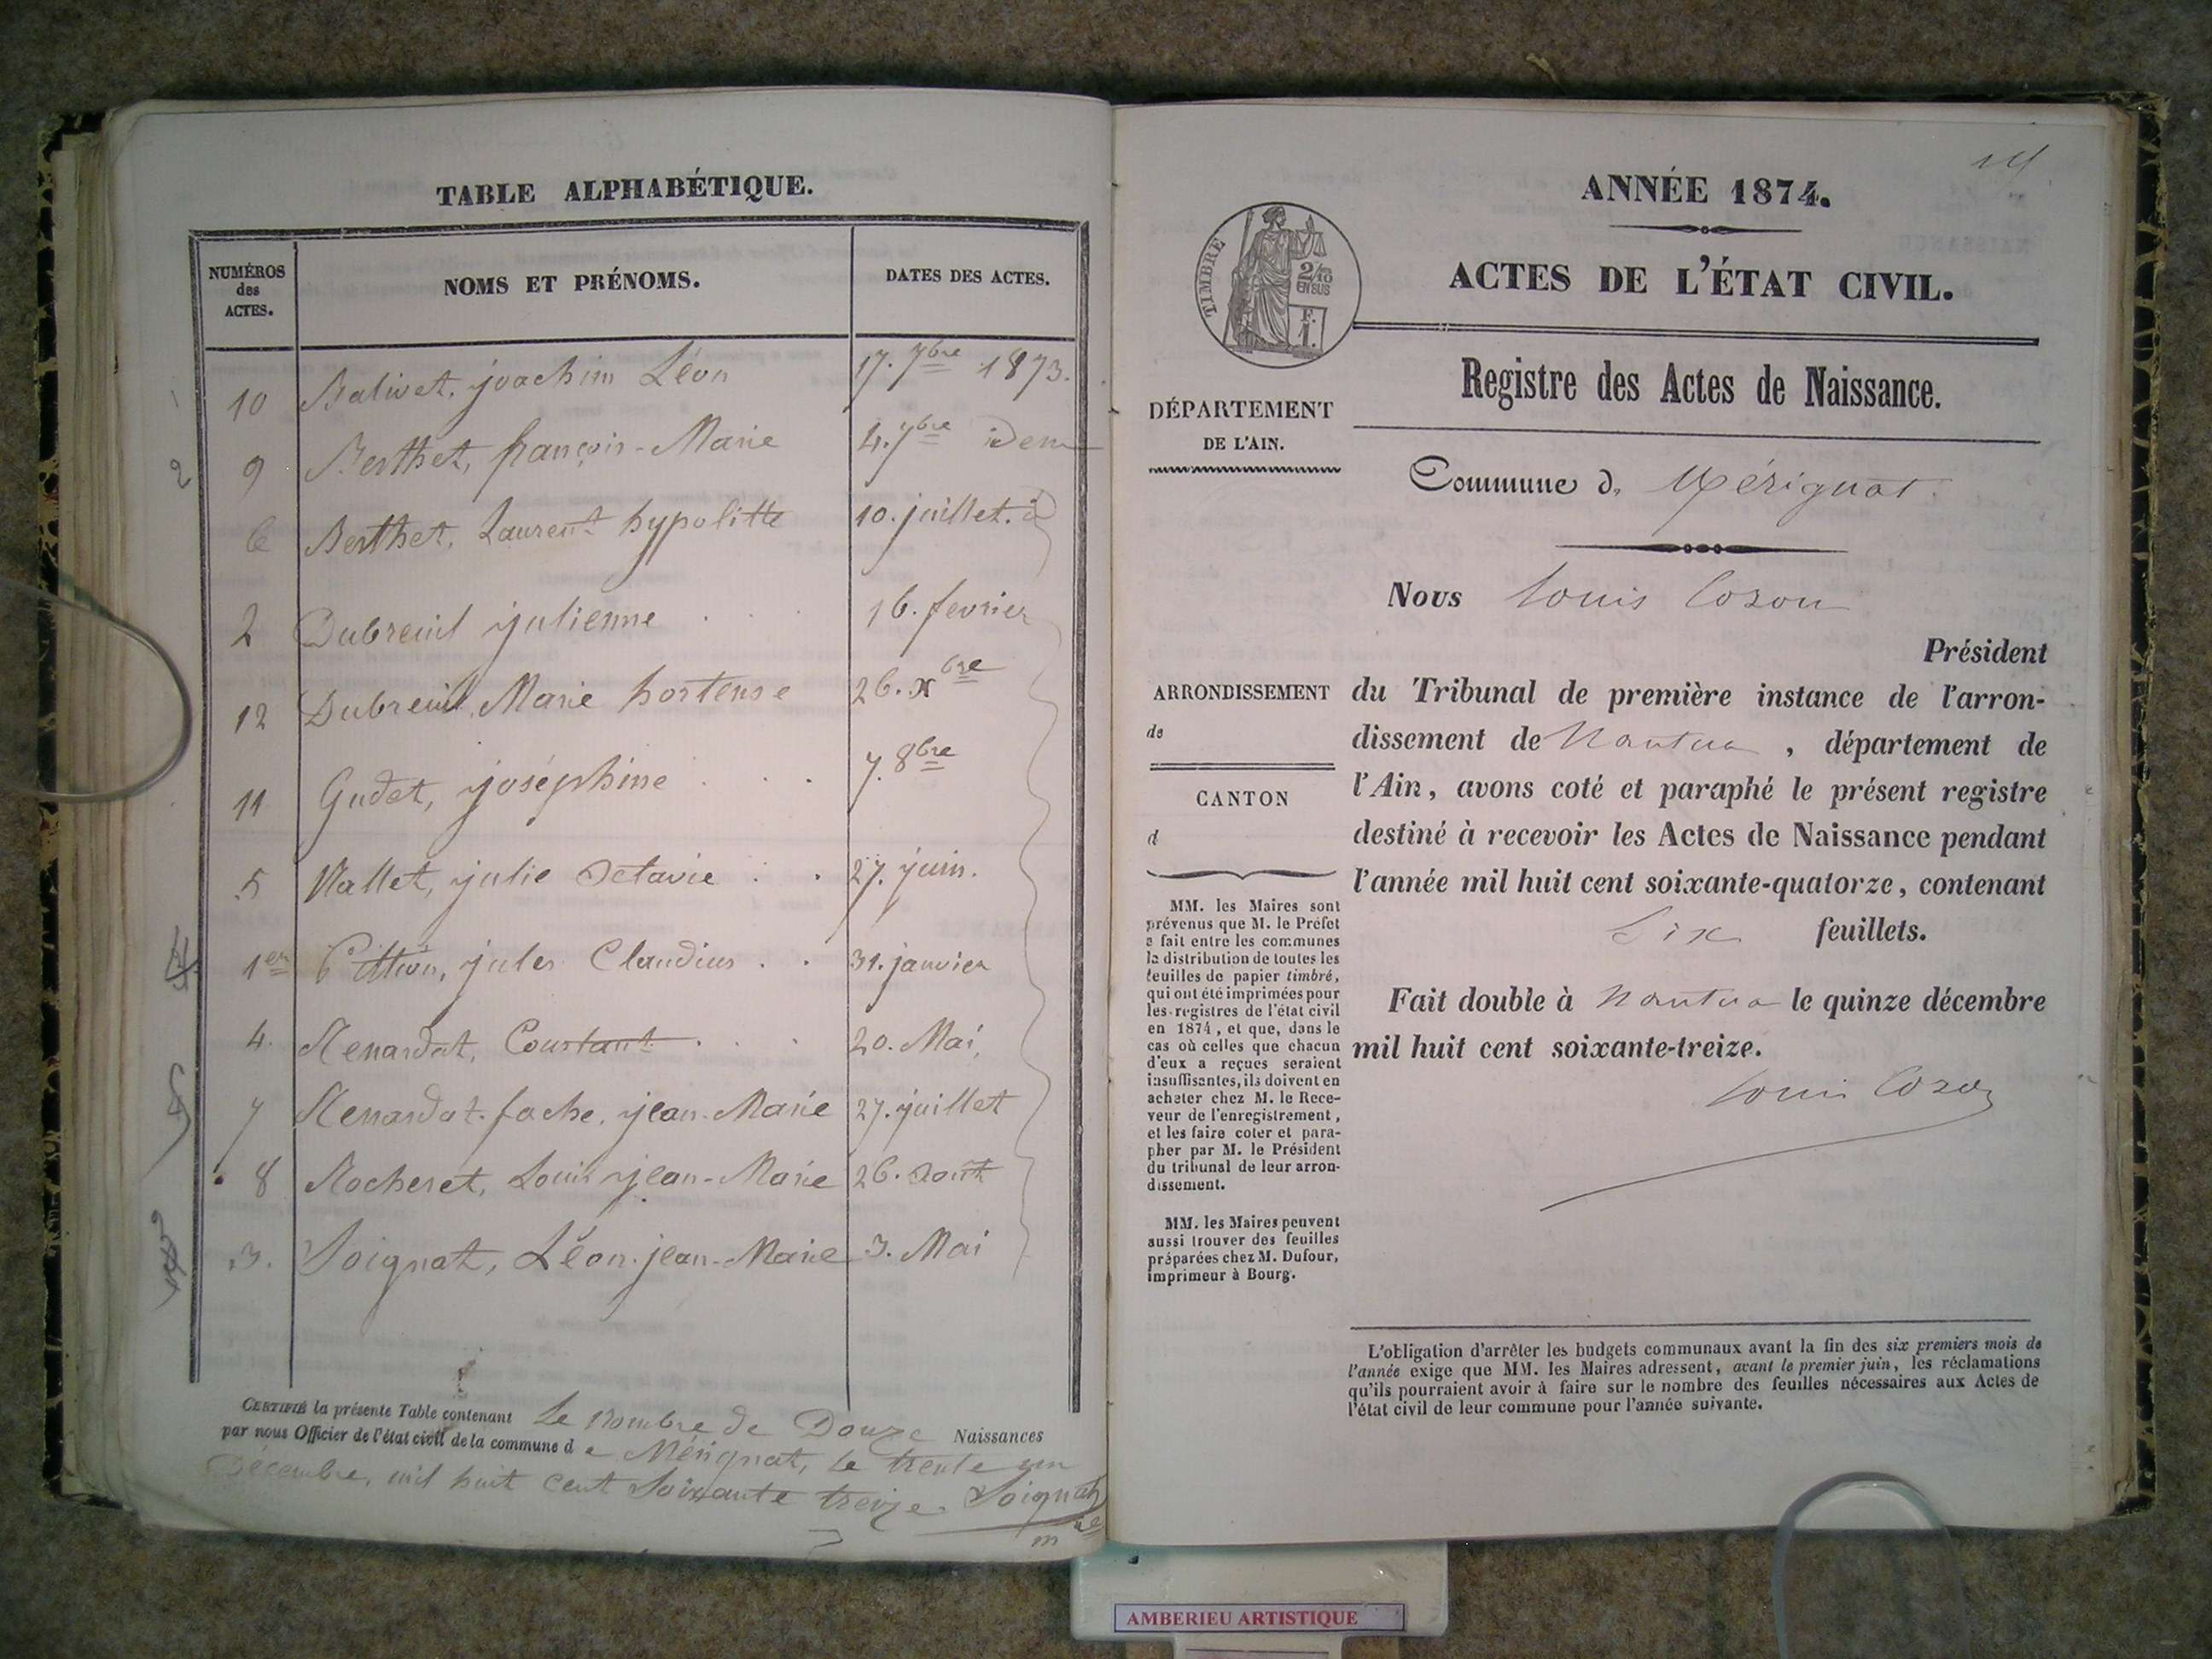 TABLE ALPHABÉTIQUE.
NUMÉROS des ACTES. NOMS ET PRÉNOMS. DATES DES ACTES.
10 Balivet, joachim Léon 17. 7bre 1873.
9 Berthet, françois-Marie 4. 7bre idem
6 Berthet, Laurent hypolitte 10. juillet. id
2 Dubreuil julienne 16. fevrier
12 Dubreuil, Marie hortense 26. xbre
11 Gudet, joséphine 7. 8bre
5 Nallet, julie Octavie 27. juin.
1er Pittion, jules Claudius 31. janvier
4. Renardat, Constant 20. Mai,
7 Renardat-fache, jean-Marie 27. juillet
8 Rocheret, Louis jean-Marie 26. Août
3. Soignat, Léon-jean-Marie 3. Mai
CERTIFIÉ la présente Table contenant Le nombre de Douze Naissances
par nous Officier de l'état civil de la commune de Mérignat, le trente un
Décembre, mil huit cent Soixante treize. Soignat
m re
ANNÉE 1874.
TIMBRE
2/10
EN SUS
F.
1.
ACTES DE L'ÉTAT CIVIL.
Registre des Actes de Naissance.
DÉPARTEMENT
DE L'AIN.
Commune de Mérignat.
Nous Louis Cozon
Président
ARRONDISSEMENT
de
CANTON
d
du Tribunal de première instance de l'arron-
dissement de Nantua, département de
l'Ain, avons coté et paraphé le présent registre
destiné à recevoir les Actes de Naissance pendant
l'année mil huit cent soixante-quatorze, contenant
Six feuillets.
Fait double à Nantua le quinze décembre
mil huit cent soixante-treize.
Louis Cozon
MM. les Maires sont
prévenus que M. le Préfet
a fait entre les communes
la distribution de toutes les
feuilles de papier timbré,
qui ont été imprimées pour
les registres de l'état civil
en 1874, et que, dans le
cas où celles que chacun
d'eux a reçues seraient
insuffisantes, ils doivent en
acheter chez M. le Rece-
veur de l'enregistrement,
et les faire coter et para-
pher par M. le Président
du tribunal de leur arron-
dissement.
MM. les Maires peuvent
aussi trouver des feuilles
préparées chez M. Dufour,
imprimeur à Bourg.
L'obligation d'arrêter les budgets communaux avant la fin des six premiers mois de
l'année exige que MM. les Maires adressent, avant le premier juin, les réclamations
qu'ils pourraient avoir à faire sur le nombre des feuilles nécessaires aux Actes de
l'état civil de leur commune pour l'année suivante.
AMBERIEU ARTISTIQUE